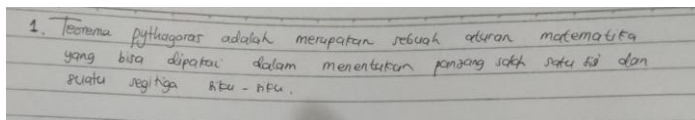 1. Teorema pythagoras adalah merupakan sebuah aturan matematika
yang bisa dipakai dalam menentukan panjang salah satu sisi dan
suatu segitiga siku - siku.